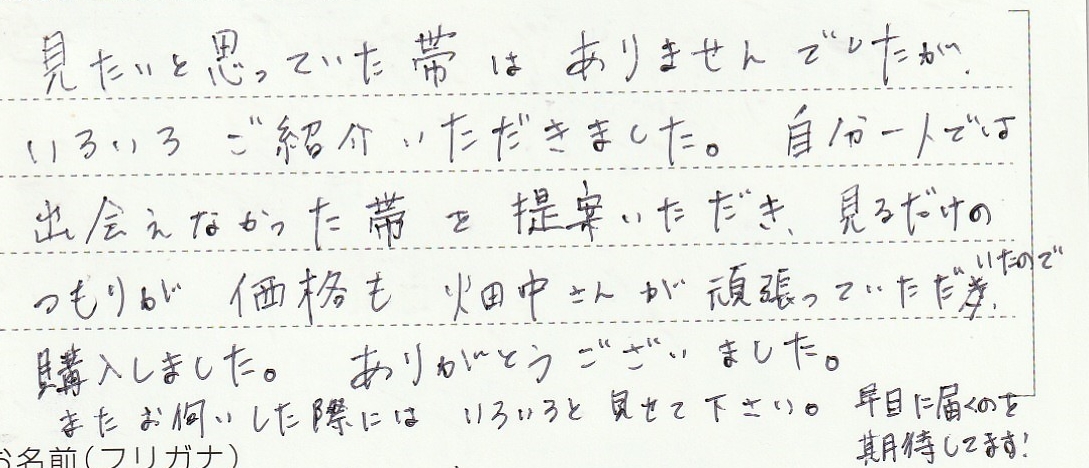 見たいと思っていた帯はありませんでしたが、
いろいろご紹介いただきました。自分一人では
出会えなかった帯を提案いただき、見るだけの
つもりが価格も畑中さんが頑張っていただ
いたので
購入しました。ありがとうございました。
またお伺いした際にはいろいろと見せて下さい。早目に届くのを
期待してます!
お名前(フリガナ)